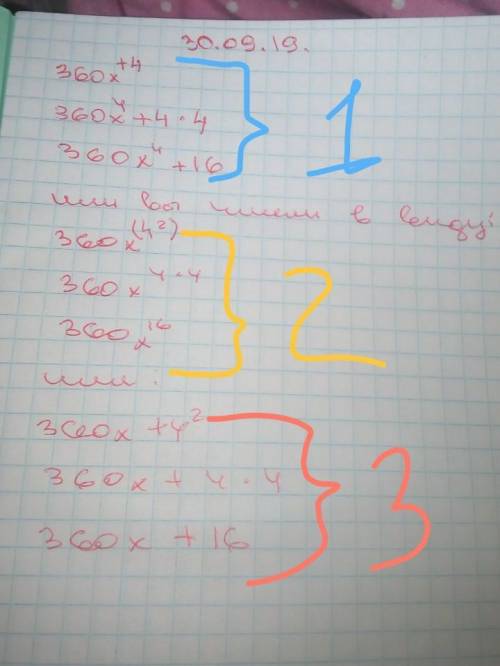 30.09.19.
360x⁺⁴
360x⁴+4·4
360x⁴+16
1
или вы имели в виду:
360x⁽⁴²⁾
360x⁴·⁴
360x¹⁶
2
или.
360x+4²
360x+4·4
360x+16
3